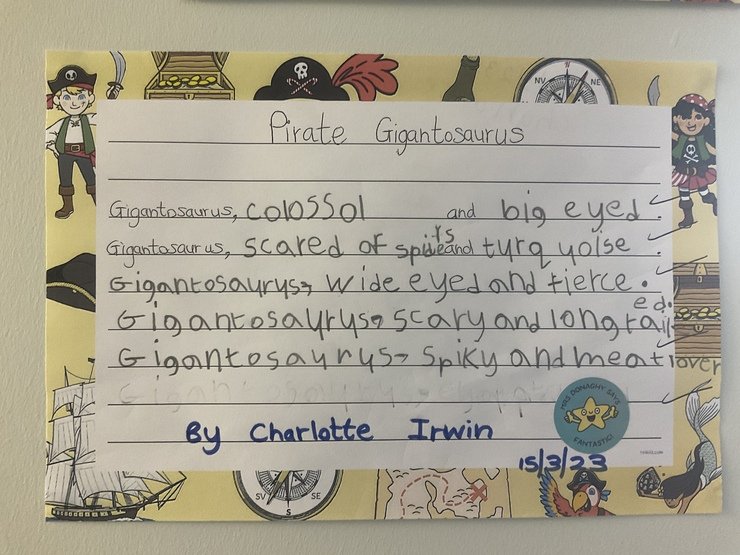 Pirate Gigantosaurus
Gigantosaurus, colossol and big eyed.
Gigantosaurus, scared of spirits and turquoise.
Gigantosaurus, wide eyed and fierce.
Gigantosaurus, scary and long tailed.
Gigantosaurus, spiky and meat lover
Gigantosaurus,
By Charlotte Irwin
MRS DONAGHY SAYS
FANTASTIC!
15/3/23
N
NV
NE
SV
S
SE